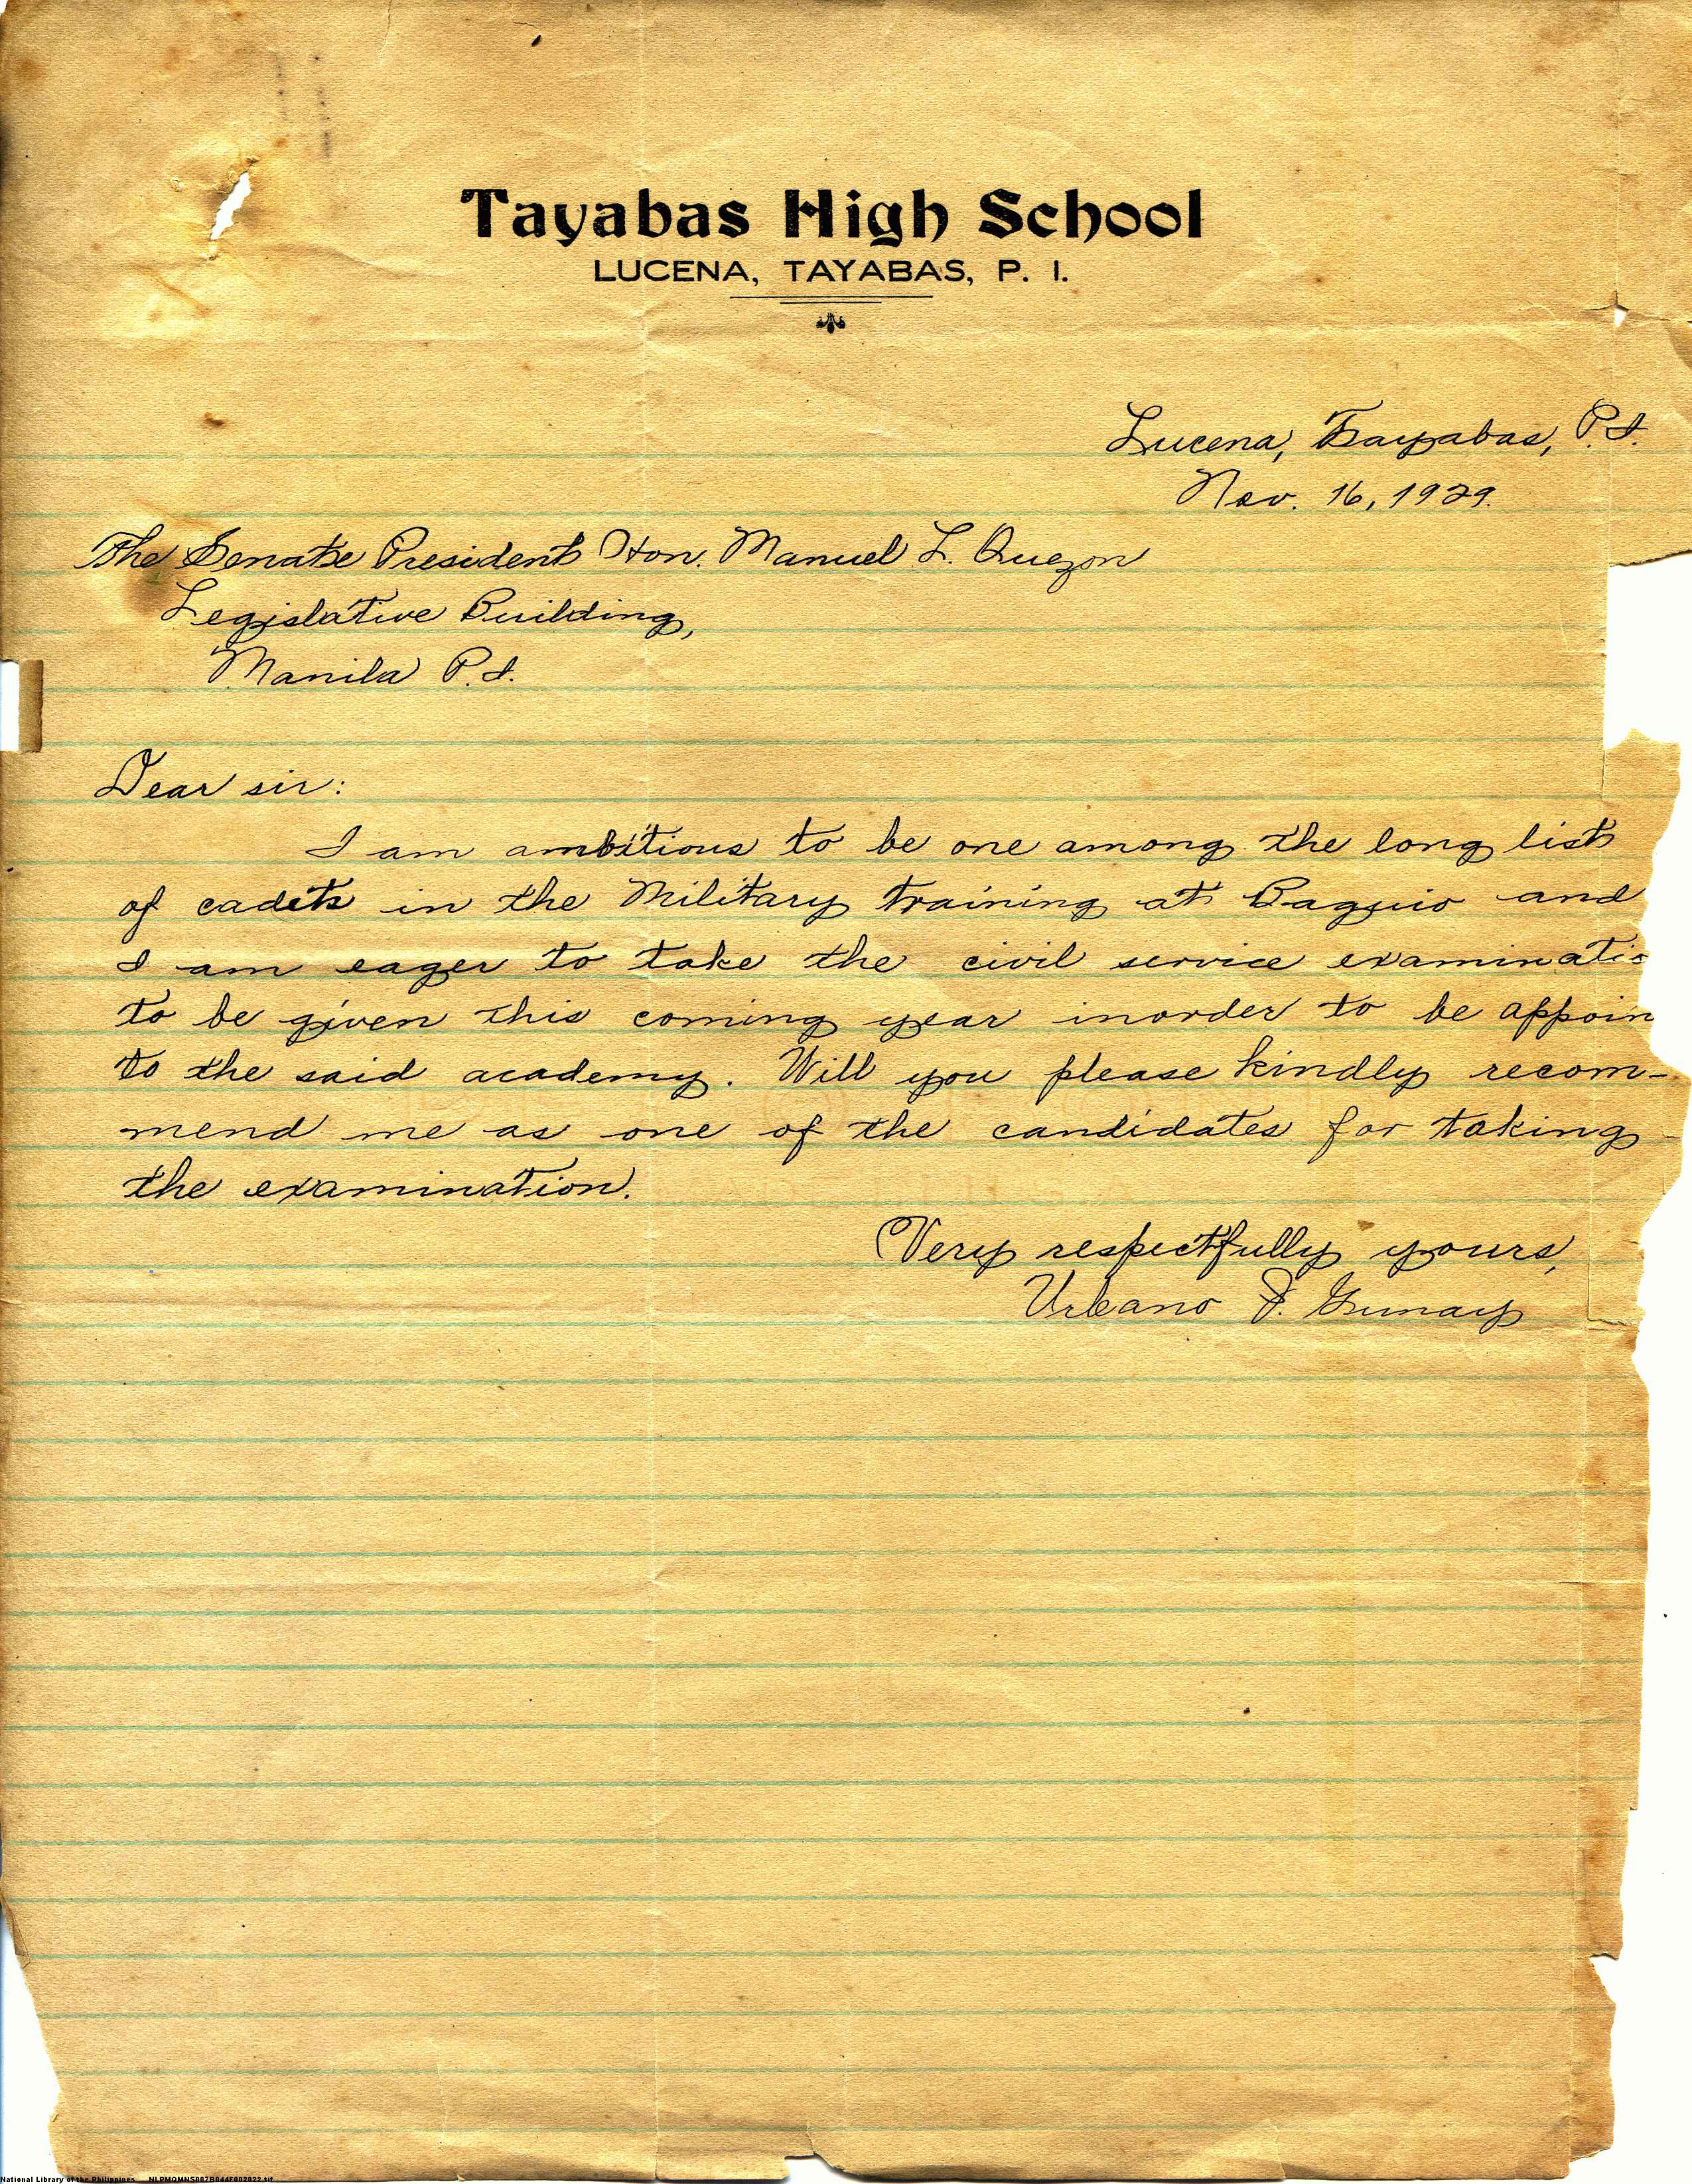 Tayabas High School
LUCENA, TAYABAS, P. I.
Lucena, Tayabas, P.I.
Nov. 16, 1929.
The Senate President Hon. Manuel L. Quezon
Legislative Building,
Manila P.I.
Dear sir:
I am ambitious to be one among the long list
of cadets in the Military training at Baguio and
I am eager to take the civil service examinatio
to be given this coming year inorder to be appoin
to the said academy. Will you please kindly recom-
mend me as one of the candidates for taking
the examination.
Very respectfully yours,
Urbano P. Gumay
National Library of the Philippines